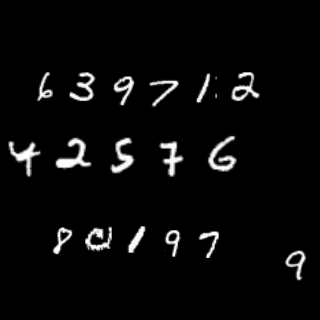 6 3 9 7 1 2
4 2 5 7 6
8 0 1 9 7
9